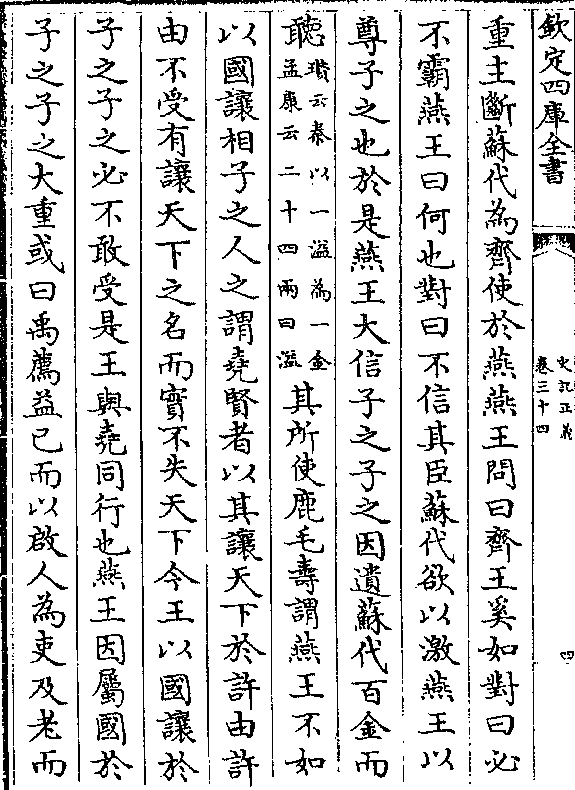 欽定四庫全書
史記正義
卷三十四
四
重主斷蘇代為齊使於燕燕王問曰齊王奚如對曰必
不霸燕王曰何也對曰不信其臣蘇代欲以激燕王以
尊子之也於是燕王大信子之子之因遺蘇代百金而
聽瓚云秦以一溢為一金孟康云二十四兩曰溢其所使鹿毛壽謂燕王不如
以國讓相子之人之謂堯賢者以其讓天下於許由許
由不受有讓天下之名而實不失天下今王以國讓於
子之子之必不敢受是王與堯同行也燕王因屬國於
子之子之大重或曰禹薦益已而以啟人為吏及老而